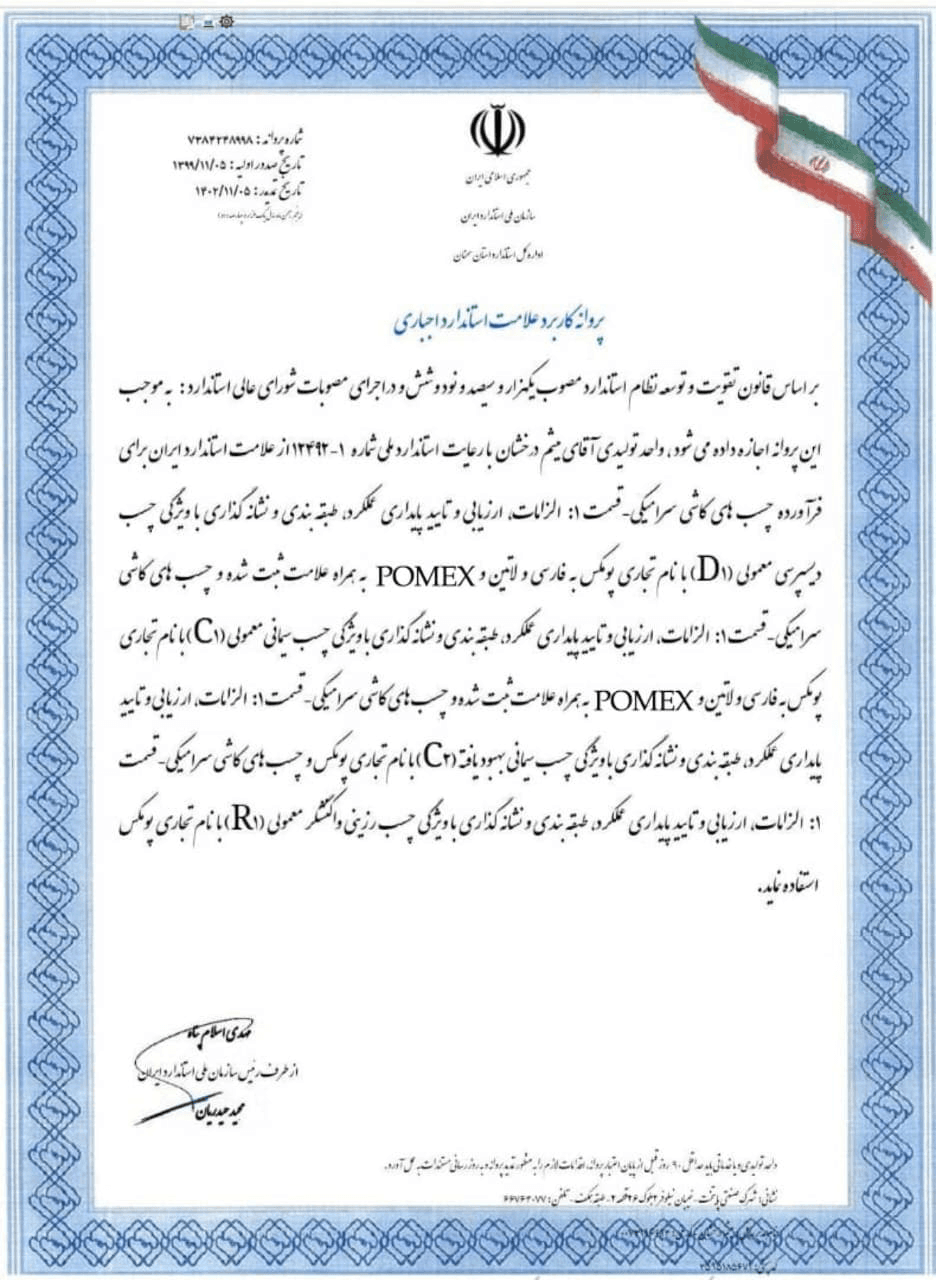 شماره پروانه: ۷۳۸۴۲۴۸۹۹۸
تاریخ صدور اولیه: ۱۳۹۹/۱۱/۰۵
تاریخ تمدید: ۱۴۰۲/۱۱/۰۵
جمهوری اسلامی ایران
سازمان ملی استاندارد ایران
اداره کل استاندارد استان سمنان
پروانه کاربرد علامت استاندارد اجباری
بر اساس قانون تقویت و توسعه نظام استاندارد مصوب یکهزار و سیصد و نود و شش و در اجرای مصوبات شورای عالی استاندارد: به موجب
این پروانه اجازه داده می شود، واحد تولیدی آقای میثم درخشان با رعایت استاندارد ملی شماره ۱-۱۲۴۹۲ از علامت استاندارد ایران برای
فرآورده چسب های کاشی سرامیکی-قسمت ۱: الزامات، ارزیابی و تایید پایداری عملکرد، طبقه بندی و نشانه گذاری با ویژگی چسب
دیسپرسی معمولی (D۱) با نام تجاری پومکس به فارسی و لاتین و POMEX به همراه علامت ثبت شده و چسب های کاشی
سرامیکی-قسمت ۱: الزامات، ارزیابی و تایید پایداری عملکرد، طبقه بندی و نشانه گذاری با ویژگی چسب سیمانی معمولی (C۱) با نام تجاری
پومکس به فارسی و لاتین و POMEX به همراه علامت ثبت شده و چسب های کاشی سرامیکی-قسمت ۱: الزامات، ارزیابی و تایید
پایداری عملکرد، طبقه بندی و نشانه گذاری با ویژگی چسب سیمانی بهبود یافته (C۲) با نام تجاری پومکس و چسب های کاشی سرامیکی-قسمت
۱: الزامات، ارزیابی و تایید پایداری عملکرد، طبقه بندی و نشانه گذاری با ویژگی چسب رزینی واکنشگر معمولی (R۱) با نام تجاری پومکس
استفاده نماید.
مهدی اسلام پناه
از طرف رئیس سازمان ملی استاندارد ایران
مجید حیدریان
واحد تولیدی و یا خدماتی باید حداقل ۹۰ روز قبل از پایان اعتبار پروانه، اقدامات لازم را به منظور تمدید پروانه و به روز رسانی مستندات به عمل آورد.
نشانی: شهرک صنعتی پایتخت - خیابان نیلوفر ۲ بلوک ۲۶ قطعه ۲، طبقه همکف - تلفن: